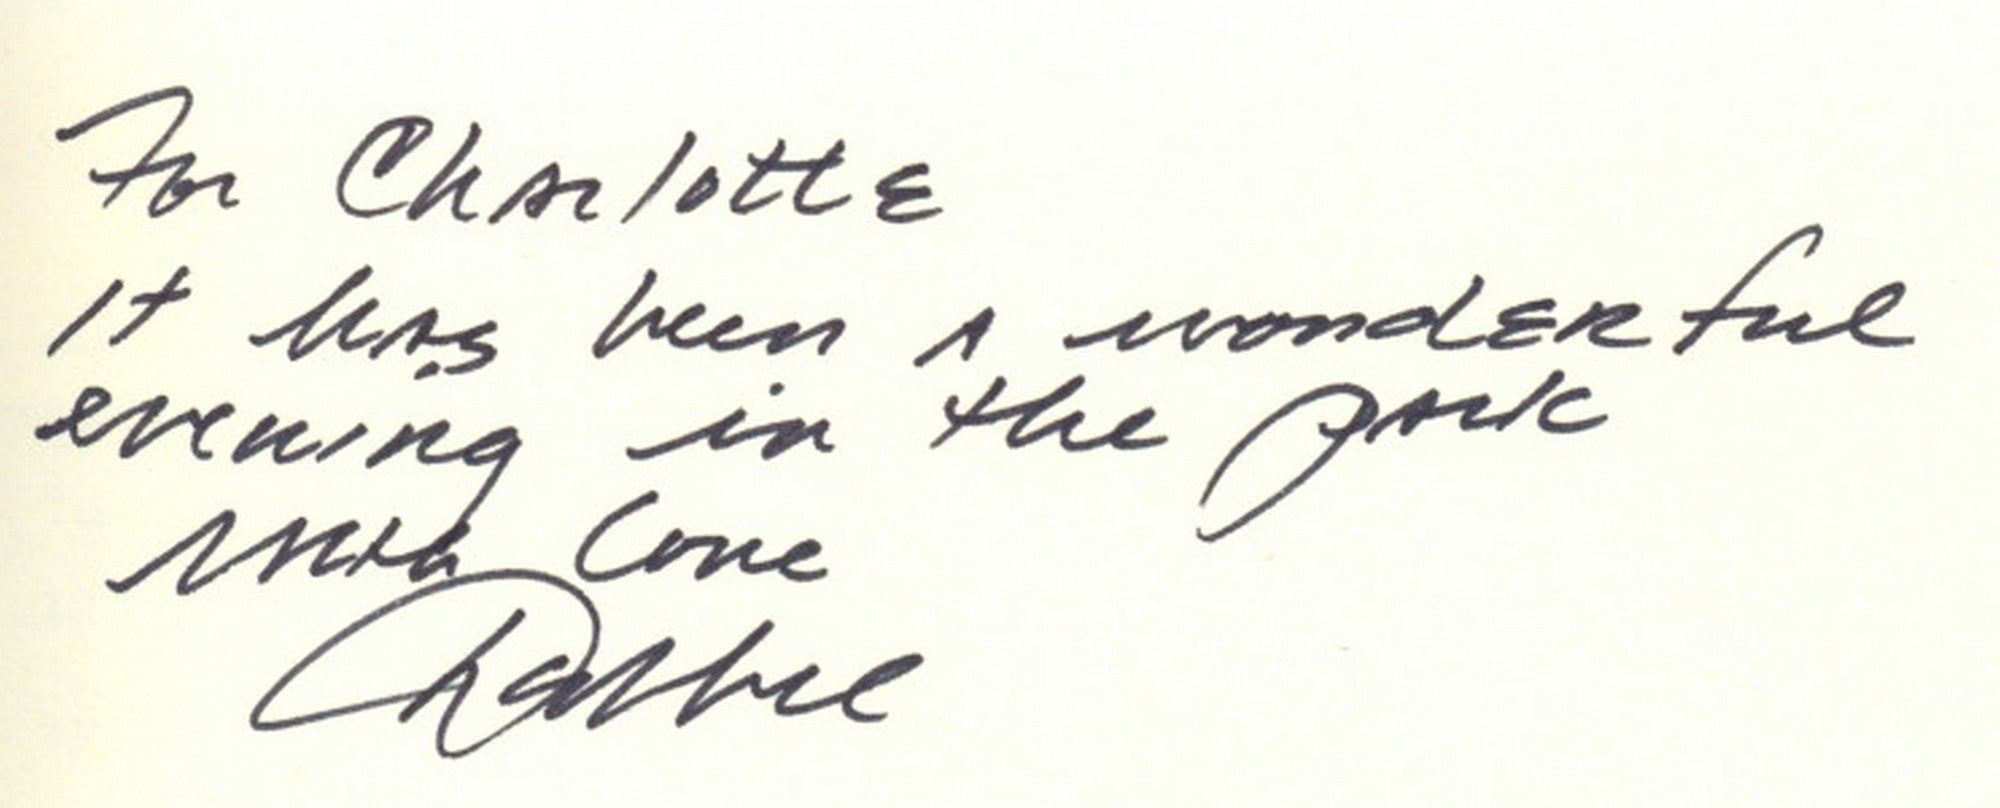 For Charlotte
It has been a wonderful
evening in the park
With love